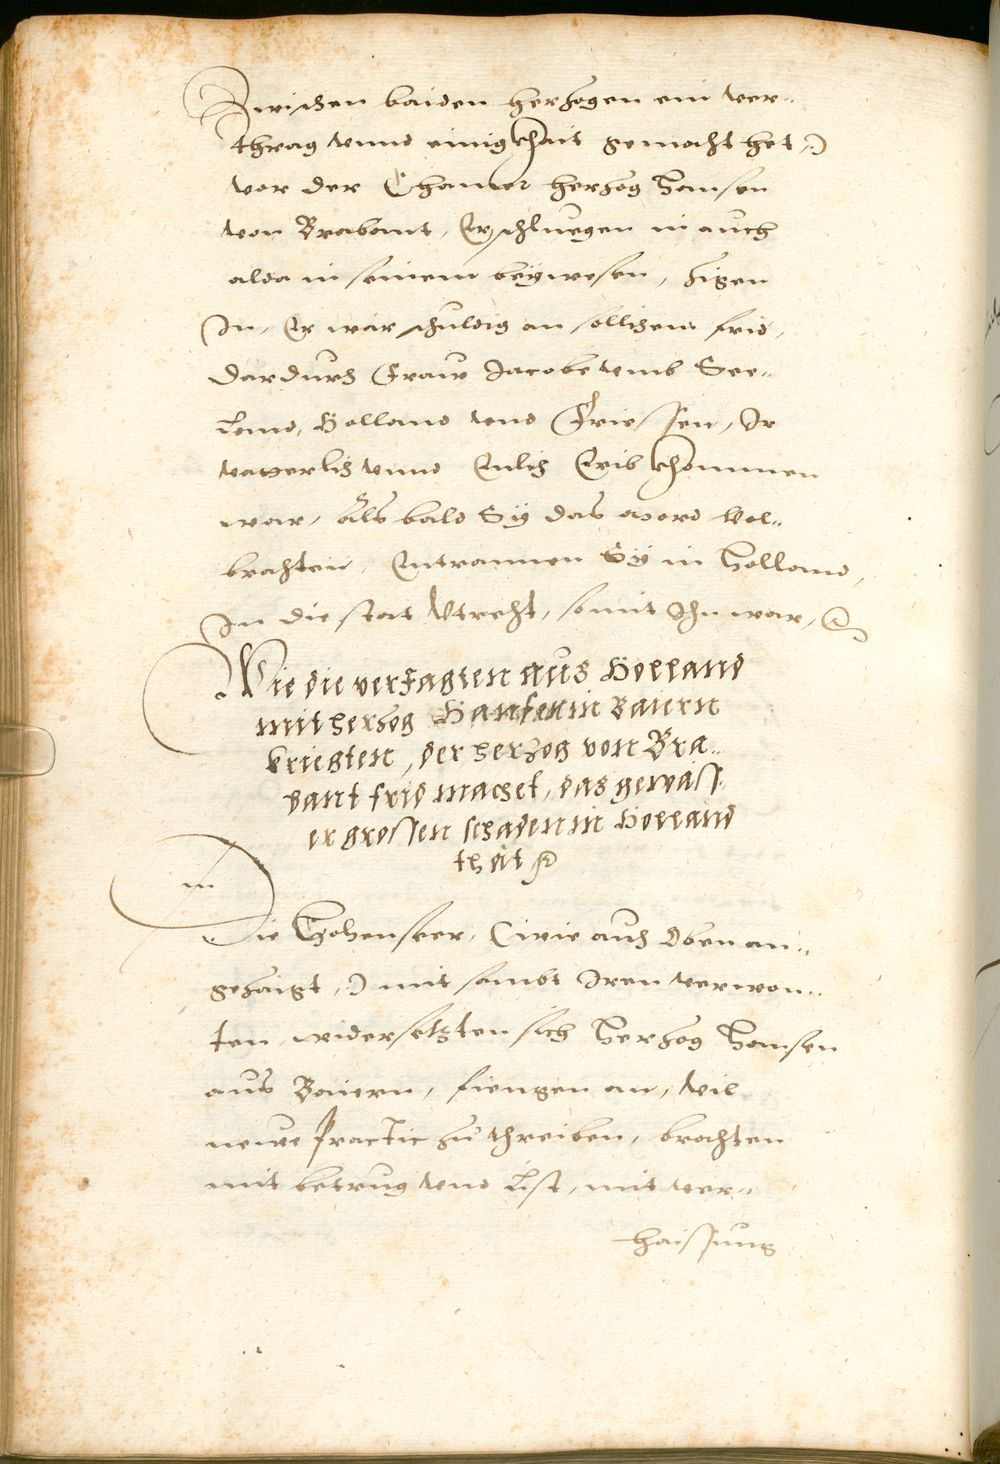 Zwischen baiden herzogen ein ver=
thrag vnnd einigkhait gemacht het,)
vor der Chamer herzog Hansen
von Brabant, Erschluegen in auch
alda in seinem beywesen, zigen
In, Er wär schuldig an sollichem frid,
dardurch Fraw Jacobe vmb See=
land, Holland vnd Friessen, Ir
vatterlich vnnd Enlich Erib khommen
war, Als bald Sy das mord vol=
brachten, Entrannen Sy in Holland,
In die stat Vtrecht, somit Ihn war,
Wie die verjagten aus Holland
mit herzog Hansen in Baiern
kriegten, der herzog von Bra=
bant frid machet, das gewäss=
er grossen schaden in Holland
thät
Die Hohenseer, (wie auch oben an=
gezaigt,) mit sambt Iren verwon=
ten, widersetzten sich Herzog Hansen
aus Baiern, fiengen an, vil
newe Practic zu threiben, brachten
mit betrug vnd list, mit ver=
haissung